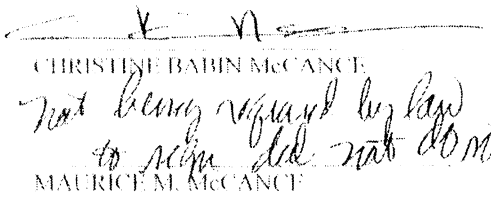 CHRISTINE BABIN McCANCE
not being required by law
to sign did not do so
MAURICE M. McCANCE